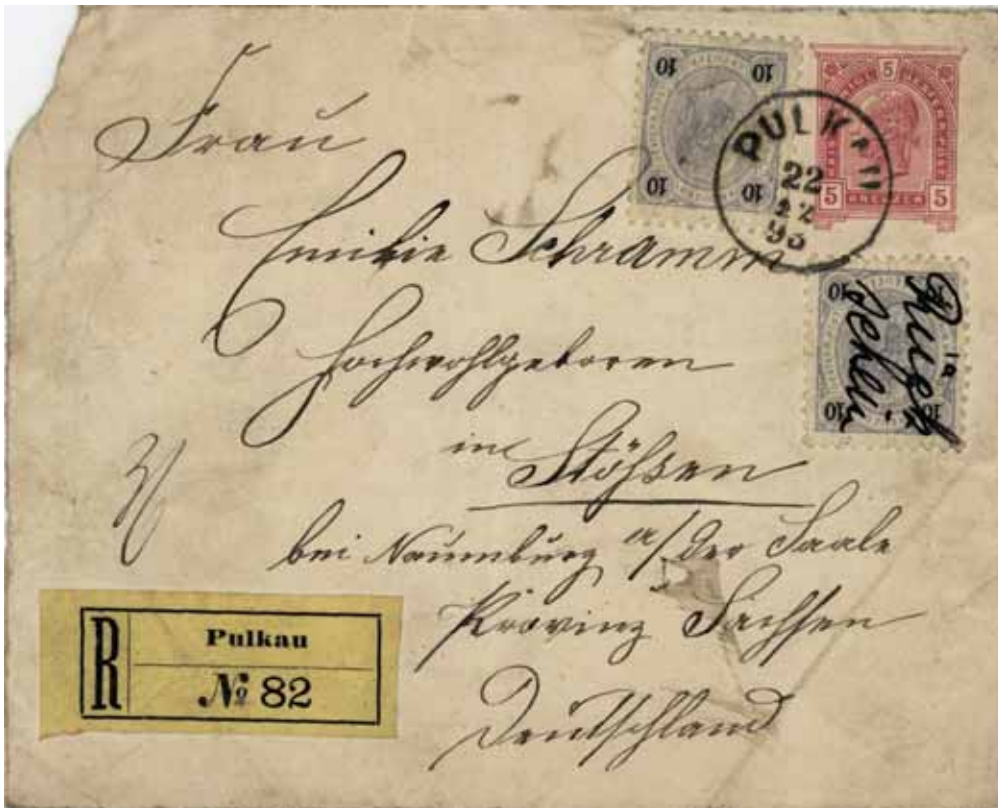 Frau
Emilie Schramm
Hochwohlgeboren
in Stößen
bei Naumburg a/der Saale
Provinz Sachsen
Deutschland
10 10
10 10
PULKAU
22
12
93
5
5 KREUZER 5
10 10
10 10
Rück
schein
R
Pulkau
№ 82